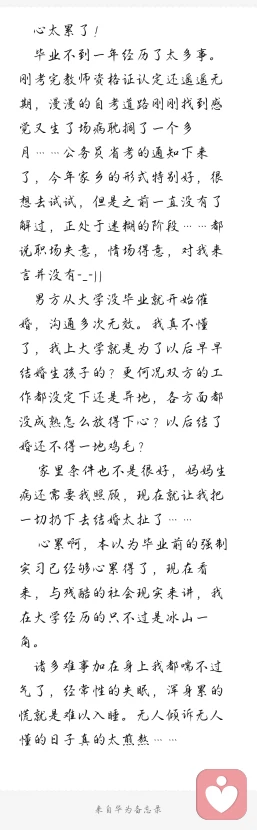 心太累了！
毕业不到一年经历了太多事。
刚考完教师资格证认定还遥遥无
期，漫漫的自考道路刚刚找到感
觉又生了场病耽搁了一个多
月……公务员省考的通知下来
了，今年家乡的形式特别好，很
想去试试，但是之前一直没有了
解过，正处于迷糊的阶段……都
说职场失意，情场得意，对我来
言并没有-_-||
男方从大学没毕业就开始催
婚，沟通多次无效。我真不懂
了，我上大学就是为了以后早早
结婚生孩子的？更何况双方的工
作都没定下还是异地，各方面都
没成熟怎么放得下心？以后结了
婚还不得一地鸡毛？
家里条件也不是很好，妈妈生
病还需要我照顾，现在就让我把
一切扔下去结婚太扯了……
心累啊，本以为毕业前的强制
实习已经够心累得了，现在看
来，与残酷的社会现实来讲，我
在大学经历的只不过是冰山一
角。
诸多难事加在身上我都喘不过
气了，经常性的失眠，浑身累的
慌就是难以入睡。无人倾诉无人
懂的日子真的太煎熬……
来自华为备忘录